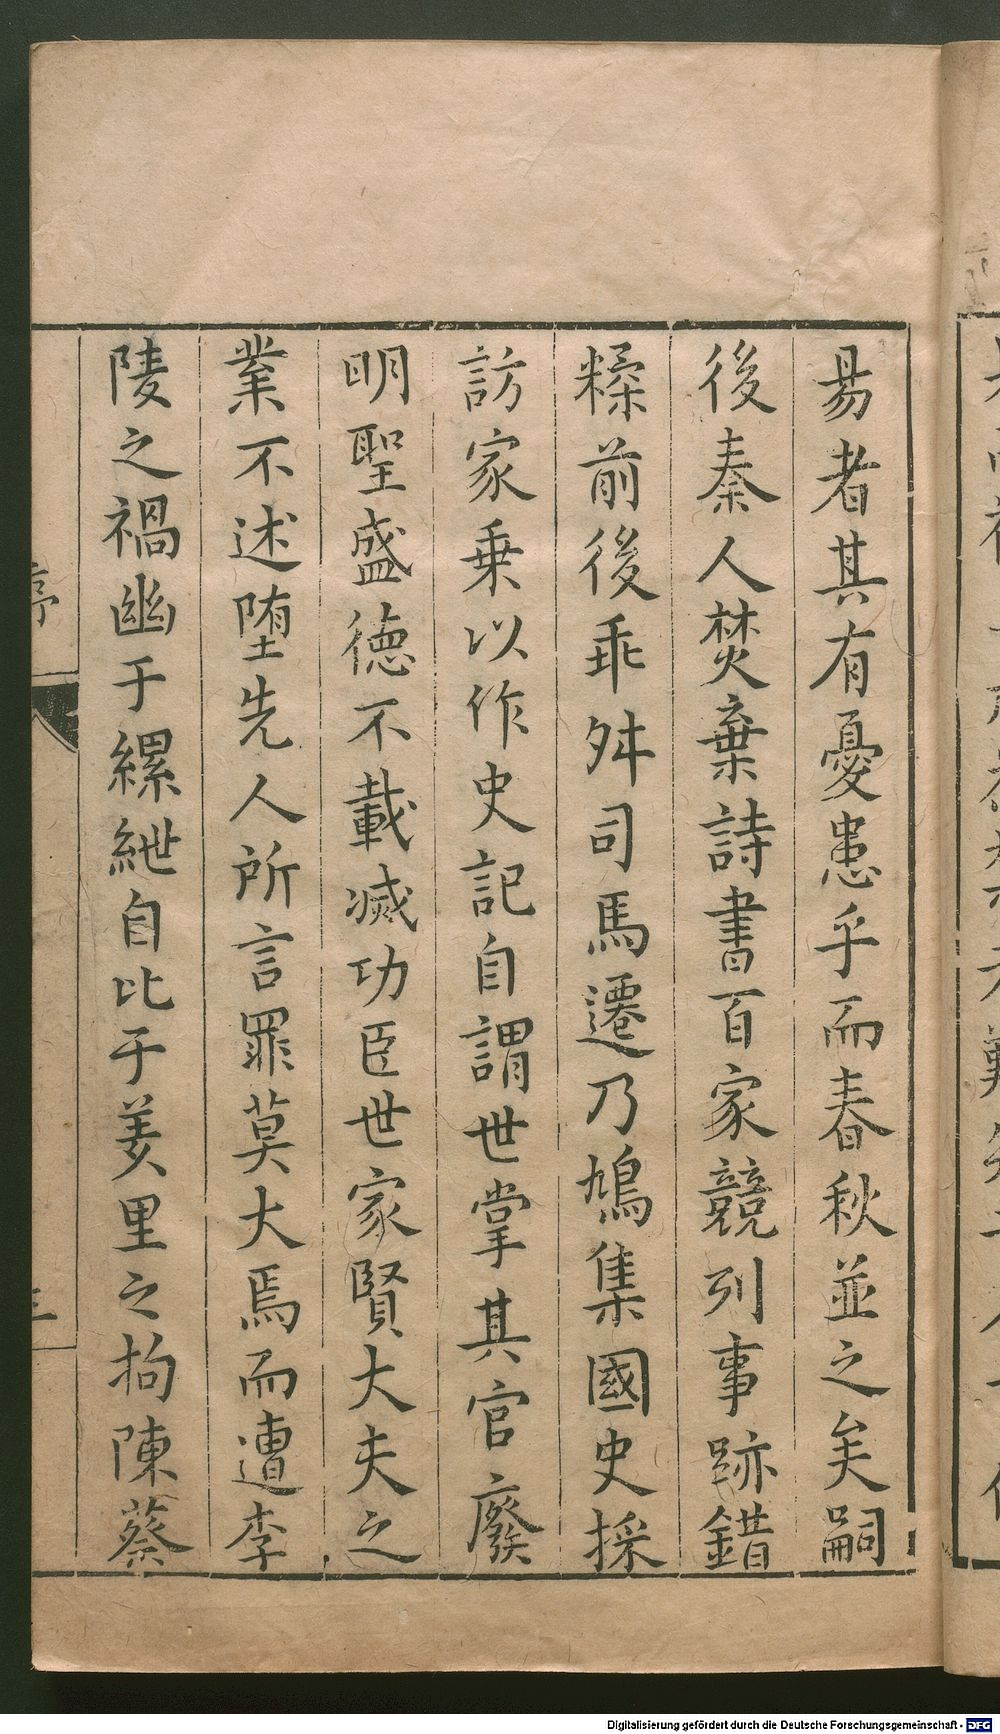 易者其有憂患乎而春秋並之矣嗣
後秦人焚棄詩書百家競列事跡錯
糅前後乖舛司馬遷乃鳩集國史採
訪家乗以作史記自謂世掌其官廢
明聖盛德不載滅功臣世家賢大夫之
業不述墮先人所言罪莫大焉而遭李
陵之禍幽于縲紲自比于羑里之拘陳蔡
Digitalisierung gefördert durch die Deutsche Forschungsgemeinschaft - DFG